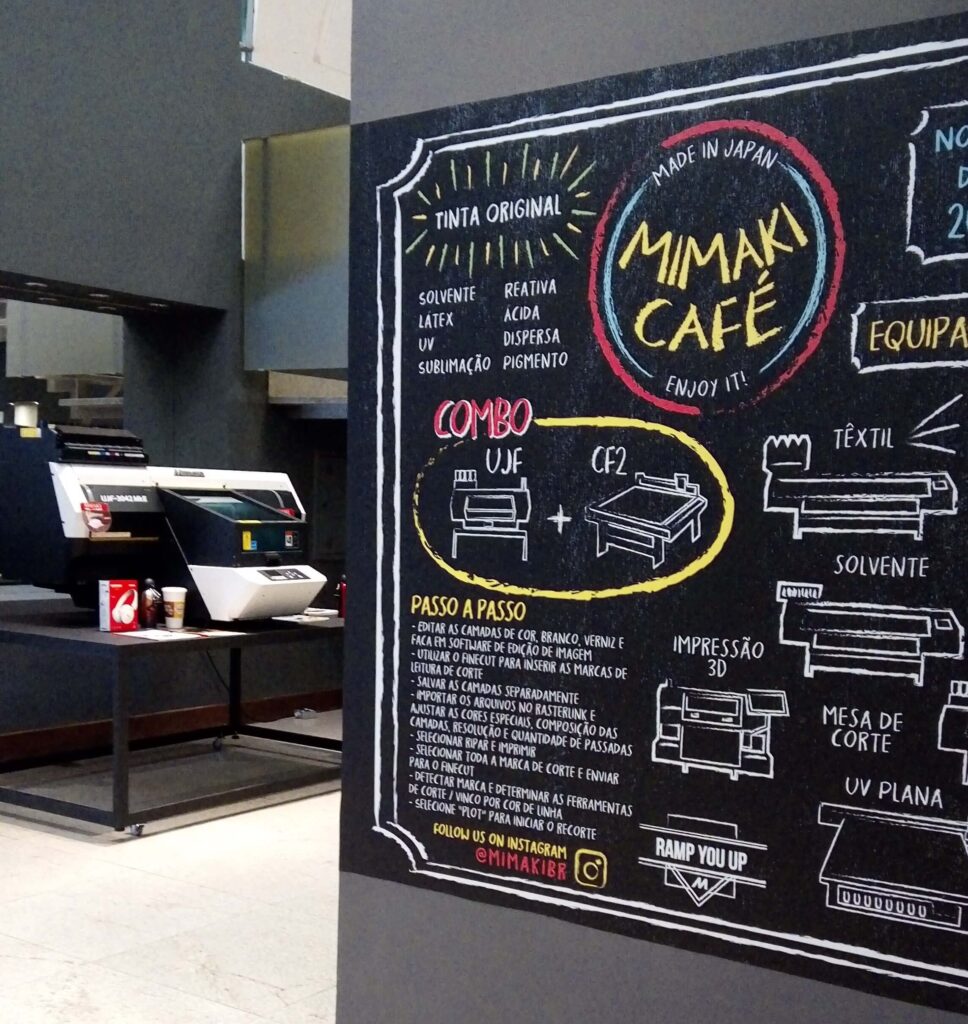 TINTA ORIGINAL
SOLVENTE
LÁTEX
UV
SUBLIMAÇÃO
REATIVA
ÁCIDA
DISPERSA
PIGMENTO
MADE IN JAPAN
MIMAKI
CAFÉ
ENJOY IT!
NO
D
2
EQUIPA
COMBO
UJF
+
CF2
PASSO A PASSO
- EDITAR AS CAMADAS DE COR, BRANCO, VERNIZ E
FACA EM SOFTWARE DE EDIÇÃO DE IMAGEM
- UTILIZAR O FINECUT PARA INSERIR AS MARCAS DE
LEITURA DE CORTE
- SALVAR AS CAMADAS SEPARADAMENTE
- IMPORTAR OS ARQUIVOS NO RASTERLINK E
AJUSTAR AS CORES ESPECIAIS, COMPOSIÇÃO DAS
CAMADAS, RESOLUÇÃO E QUANTIDADE DE PASSADAS
- SELECIONAR RIPAR E IMPRIMIR
- SELECIONAR TODA A MARCA DE CORTE E ENVIAR
PARA O FINECUT
- DETECTAR MARCA E DETERMINAR AS FERRAMENTAS
DE CORTE / VINCO POR COR DE LINHA
- SELECIONE "PLOT" PARA INICIAR O RECORTE
FOLLOW US ON INSTAGRAM
@MIMAKIBR
TÊXTIL
SOLVENTE
IMPRESSÃO
3D
MESA DE
CORTE
UV PLANA
RAMP YOU UP
M
UJF-3042MkII